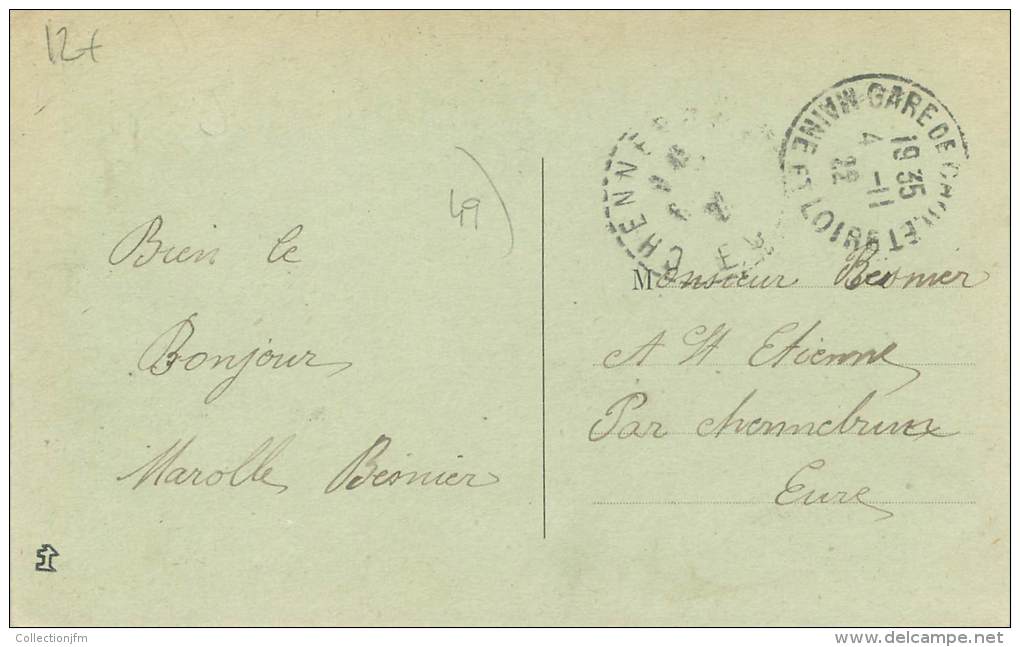 12+
49
Bien le
Bonjour
Marolle Besnier
GARE DE CHOLET
MAINE ET LOIRE
19 35
4 -11
22
CHENNE
E
Monsieur Besnier
A St Etienne
Par chennebrun
Eure
Collectionjfm
delcampe.net